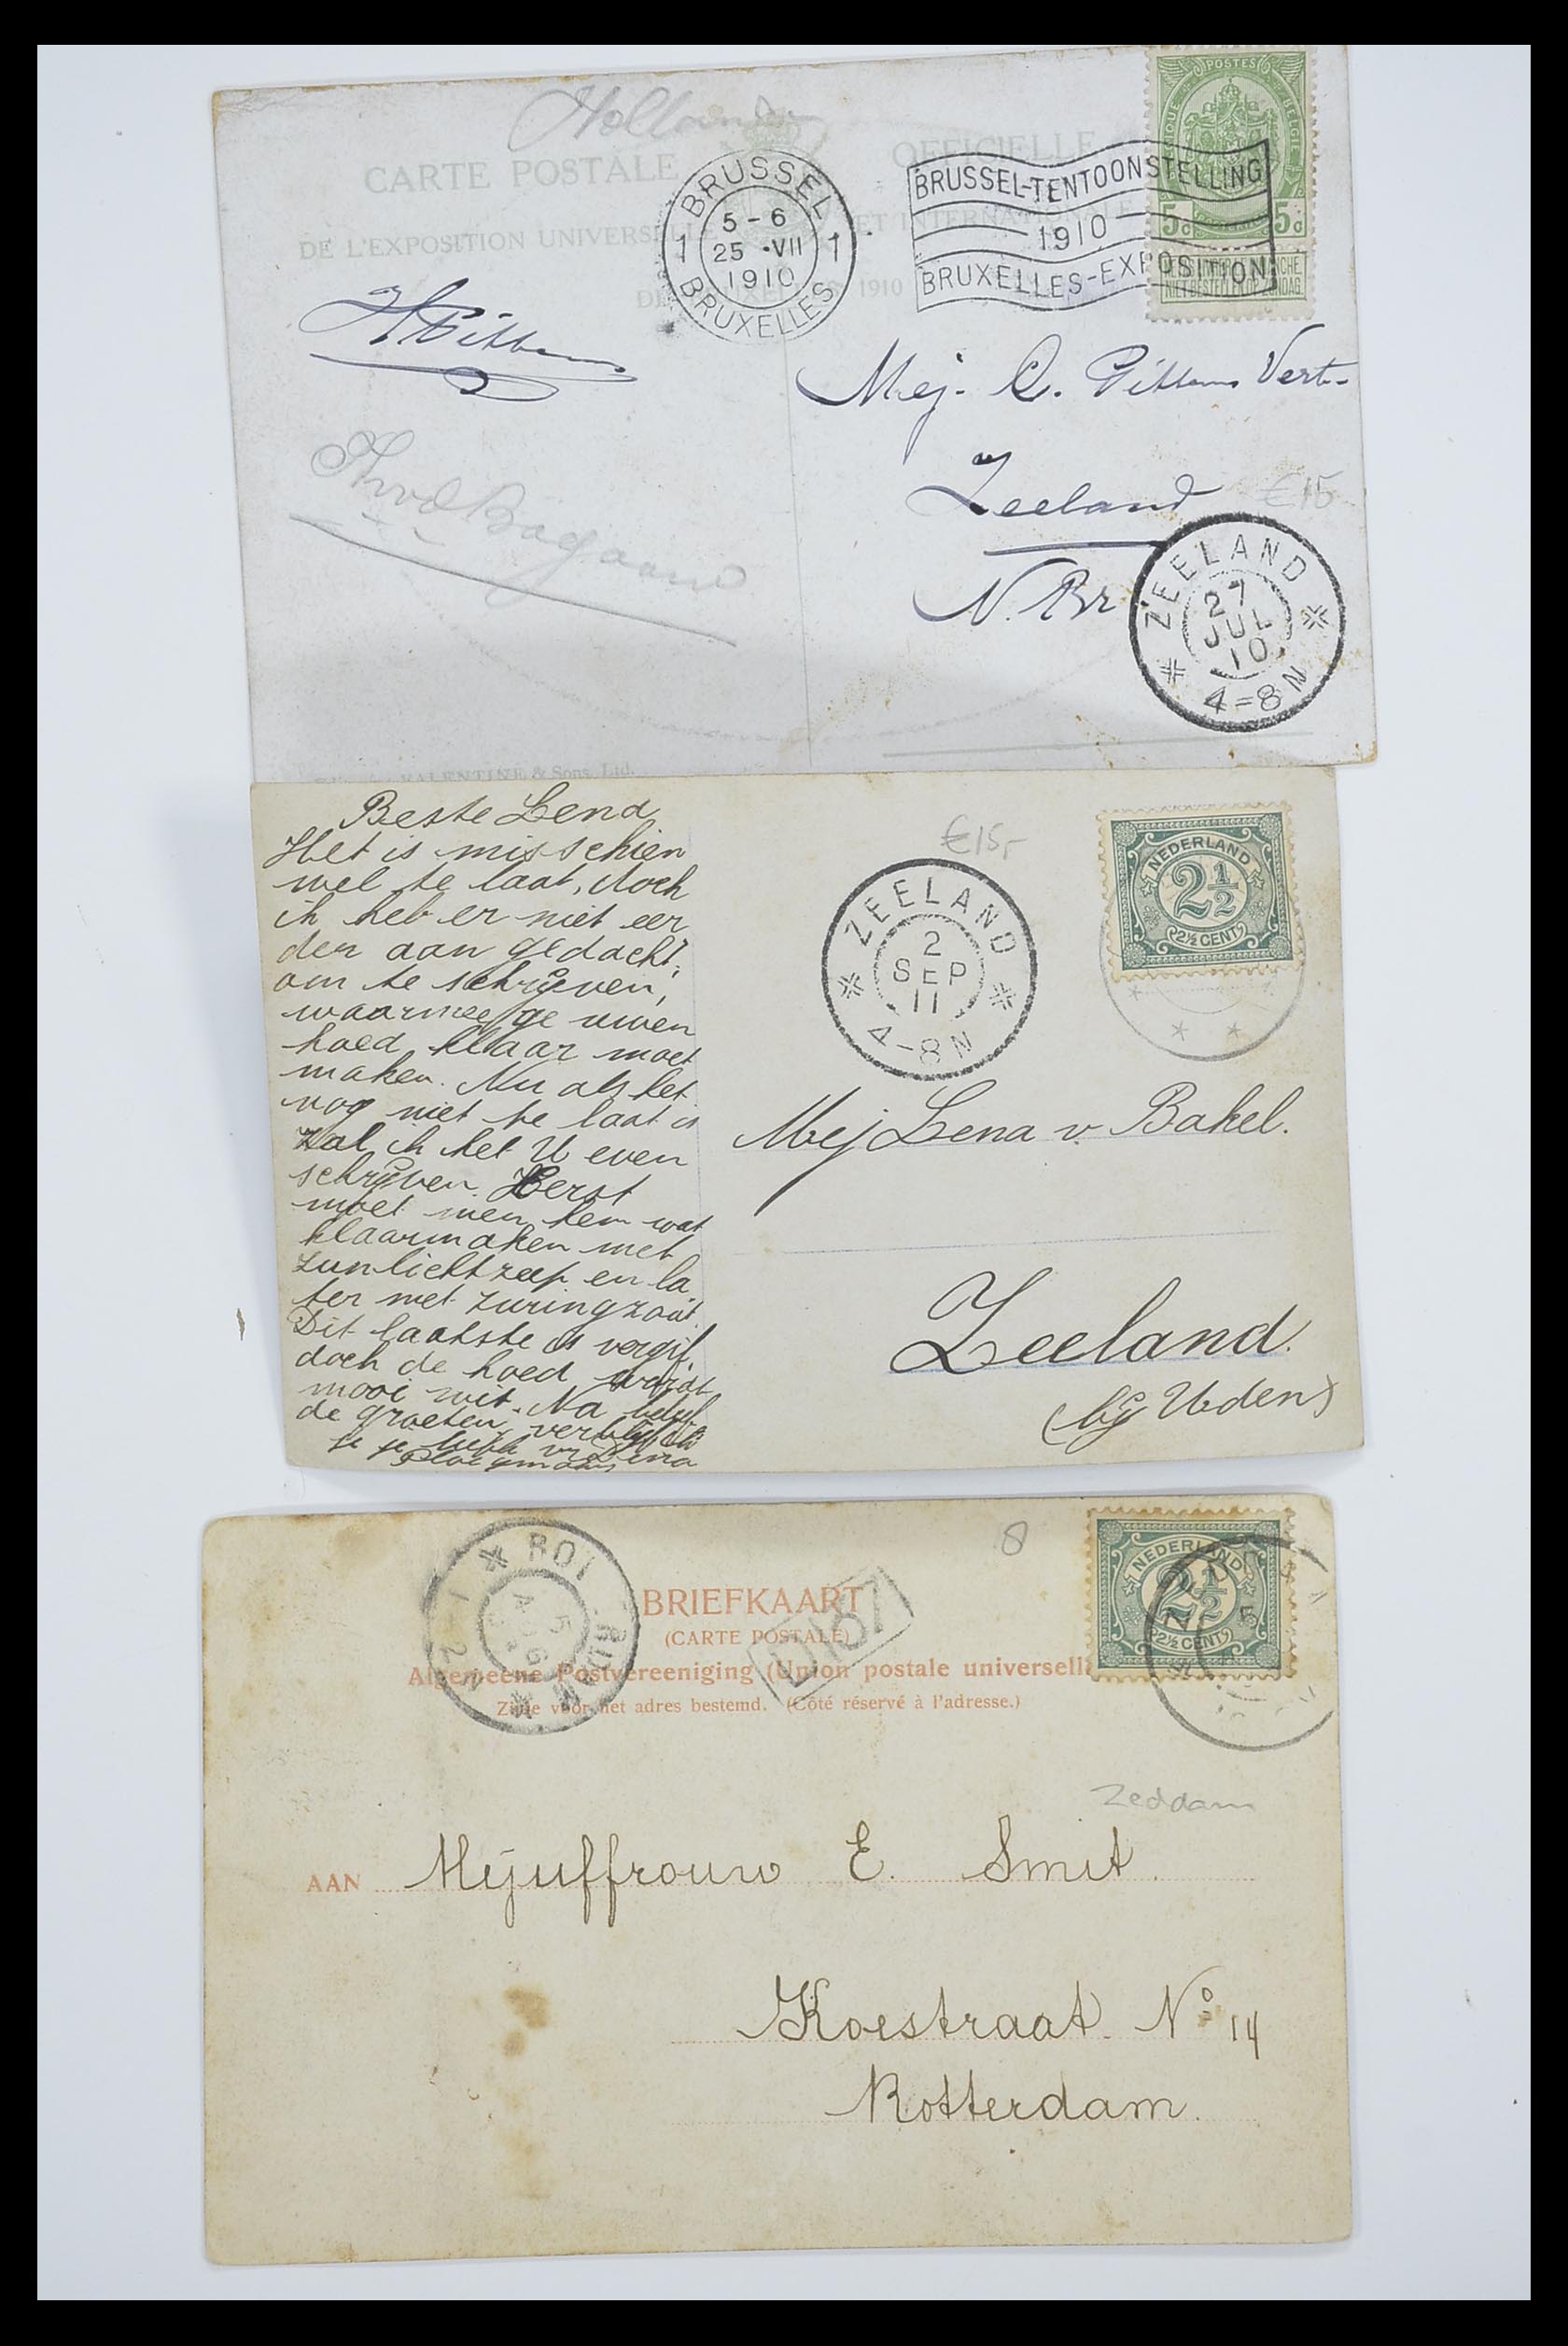 Holland
CARTE POSTALE OFFICIELLE
DE L'EXPOSITION UNIVERSELLE ET INTERNATIONALE
DE BRUXELLES 1910
BRUSSEL
1 5-6 1
25 ·VII
1910
BRUXELLES
BRUSSEL-TENTOONSTELLING
1910
BRUXELLES-EXPOSITION
POSTES
BELGIQUE BELGIE
5c 5c
NIET BESTELLEN OP ZONDAG
Mej. C. Vert-
Zeeland €15
N. Br
ZEELAND
27
JUL
10
4-8 N
VALENTINE & Sons, Ltd.
Beste Lena
Het is misschien
wel te laat, doch
ik heb er niet eer
der aan gedacht,
om te schrijven,
waarmee ge uwen
hoed klaar moet
maken. Nu als het
nog niet te laat is
zal ik het U even
schrijven. Eerst
moet men hem wat
klaarmaken met
zunlichtzeep en la
ter met zuringzout.
Dit laatste is vergif,
doch de hoed wordt
mooi wit. Na
de groeten verblijf ik
Lena
€15,-
ZEELAND
2
SEP
11
4-8 N
NEDERLAND
2½
2½ CENT
Mej Lena v. Bakel.
Zeeland.
(bij Uden)
8
BRIEFKAART
(CARTE POSTALE)
Algemeene Postvereeniging (Union postale universelle
Zijde voor het adres bestemd. (Côté réservé à l'adresse.)
NEDERLAND
2½
2½ CENT
Zeddam
AAN Mejuffrouw E. Smit.
Koestraat. No 14
Rotterdam.